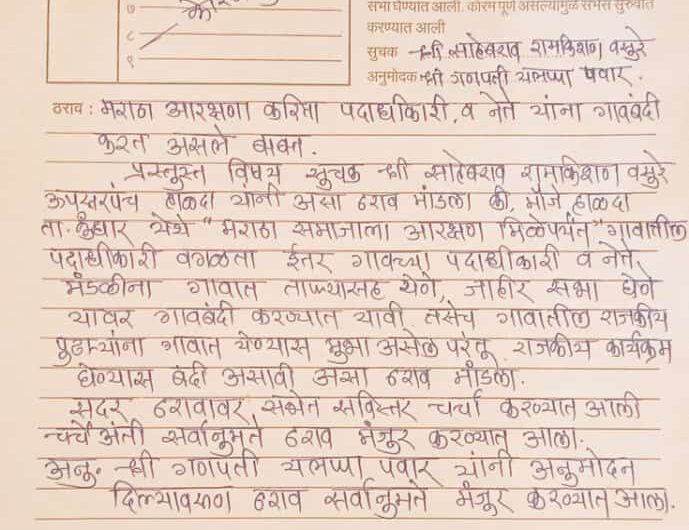 सभा घेण्यात आली. कोरम पूर्ण असल्यामुळे सभेस सुरुवात
७
करण्यात आली
८
सुचक श्री साहेबराव रामकिशन वसुरे
९
अनुमोदक श्री गणपती यलप्पा पवार.
ठराव : मराठा आरक्षणा करिता पदाधीकारी, व नेते यांना गावबंदी
करत असले बाबत.
प्रस्तुस्त विषय सुचक श्री साहेबराव रामकिशन वसुरे
ऊपसरपंच हाळदा यांनी असा ठराव मांडला की, मौजे हाळदा
ता. कंधार येथे "मराठा समाजाला आरक्षण मिळेपर्यंत" गावातील
पदाधीकारी वगळता ईतर गावच्या पदाधीकारी व नेते
मंडळीना गावात ताफ्यासह येणे, जाहीर सभा घेणे
यावर गावबंदी करण्यात यावी तसेच गावातील राजकीय
पुढाऱ्यांना गावात येण्यास मुभा असेल परंतू राजकीय कार्यक्रम
घेण्यास बंदी असावी असा ठराव मांडला.
सदर ठरावावर सभेत सविस्तर चर्चा करण्यात आली
चर्चे अंती सर्वानुमते ठराव मंजुर करण्यात आला.
अनु. श्री गणपती यलप्पा पवार यांनी अनुमोदन
दिल्यावरुन ठराव सर्वानुमते मंजुर करण्यात आला.